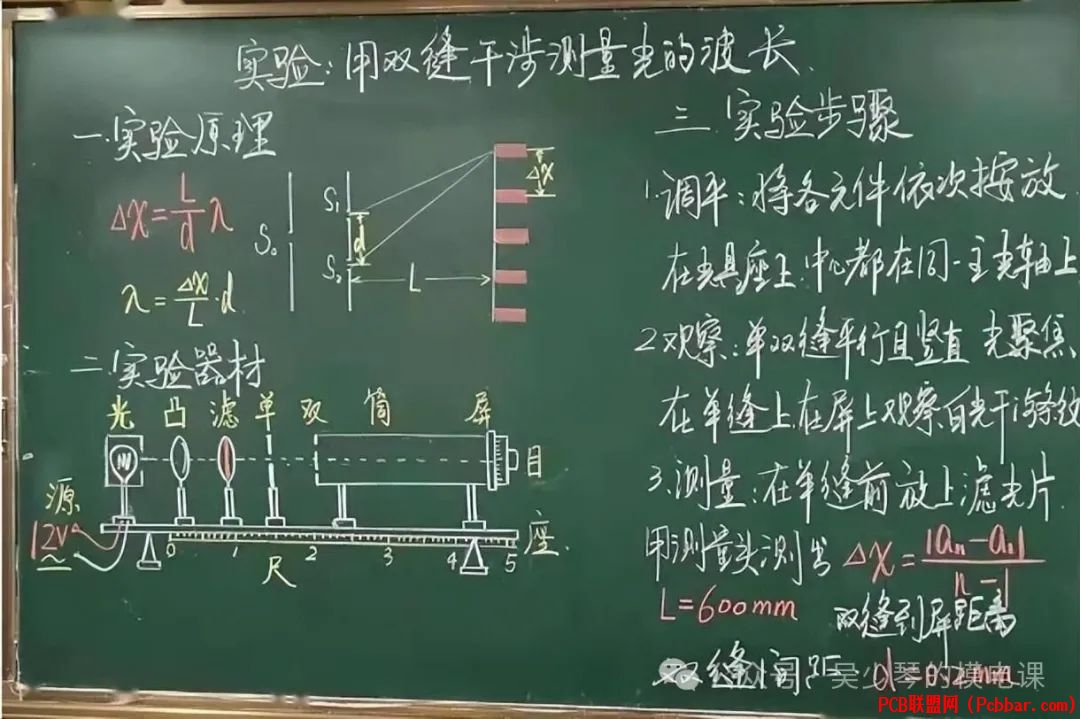 实验:用双缝干涉测量光的波长.
一.实验原理
Δx=L/d λ
λ=Δx/L·d
S₀
S₁
d
S₂
L
Δx
二.实验器材
光 凸 滤 单 双 筒 屏
目
源
12V
~
0 1 2 3 4 5
尺
座.
三.实验步骤
1.调平:将各元件依次按放
在光具座上,中心都在同一主光轴上
2.观察:单双缝平行且竖直 光聚焦
在单缝上,在屏上观察白光干涉条纹
3.测量:在单缝前放上滤光片.
用测量头测出 Δx=|aₙ-a₁|/n-1
L=600mm 双缝到屏距离
双缝间距 d=0.2mm
吴少琴的模电课
PCB联盟网(Pcbbar.com)